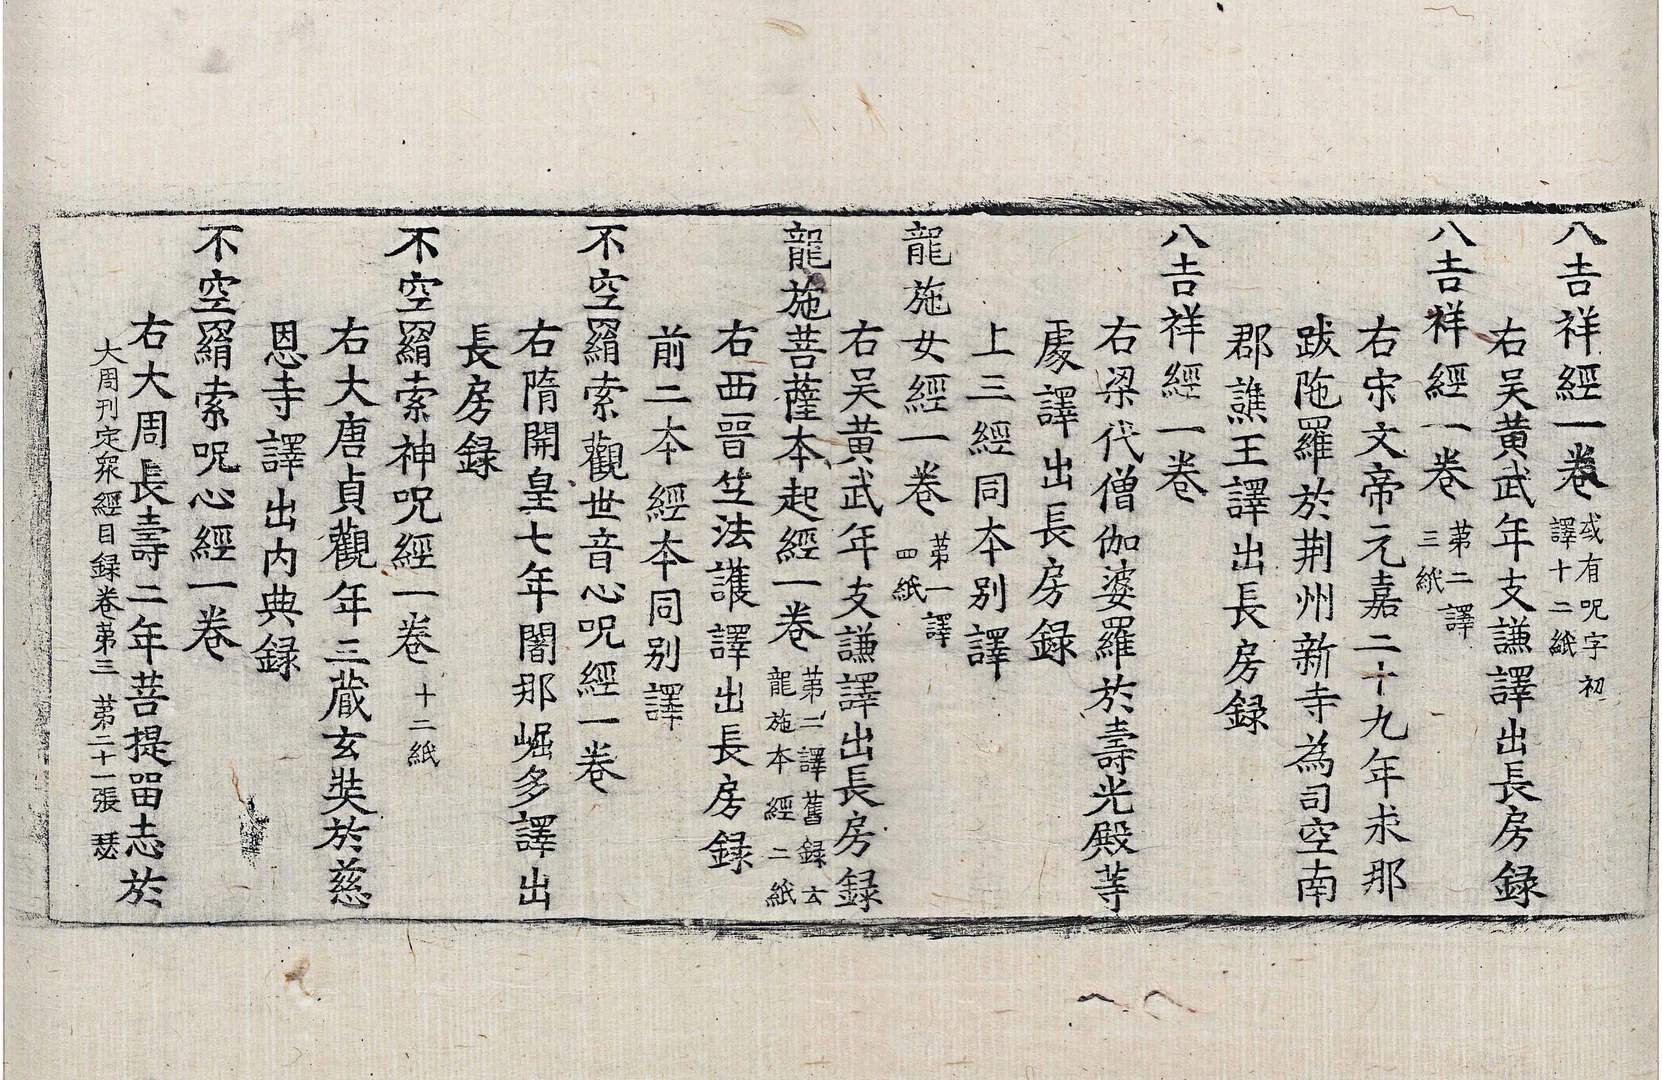 八吉祥經一卷 或有呪字初譯十二紙
右吴黄武年支謙譯出長房録
八吉祥經一卷 苐二譯三紙
右宋文帝元嘉二十九年求那
跋陁羅於荆州新寺為司空南
郡譙王譯出長房録
八吉祥經一卷
右梁代僧伽婆羅於壽光殿等
處譯出長房録
上三經同本别譯
龍施女經一卷 苐一譯四紙
右吴黄武年支謙譯出長房録
龍施菩薩本起經一卷 苐二譯舊録云龍施本經二紙
右西晉竺法護譯出長房録
前二本經本同别譯
不空羂索觀世音心呪經一卷
右隋開皇七年闍那崛多譯出
長房録
不空羂索神呪經一卷 十二紙
右大唐貞觀年三藏玄奘於慈
恩寺譯出内典録
不空羂索呪心經一卷
右大周長壽二年菩提留志於
大周刊定衆經目録卷苐三 苐二十一張 瑟